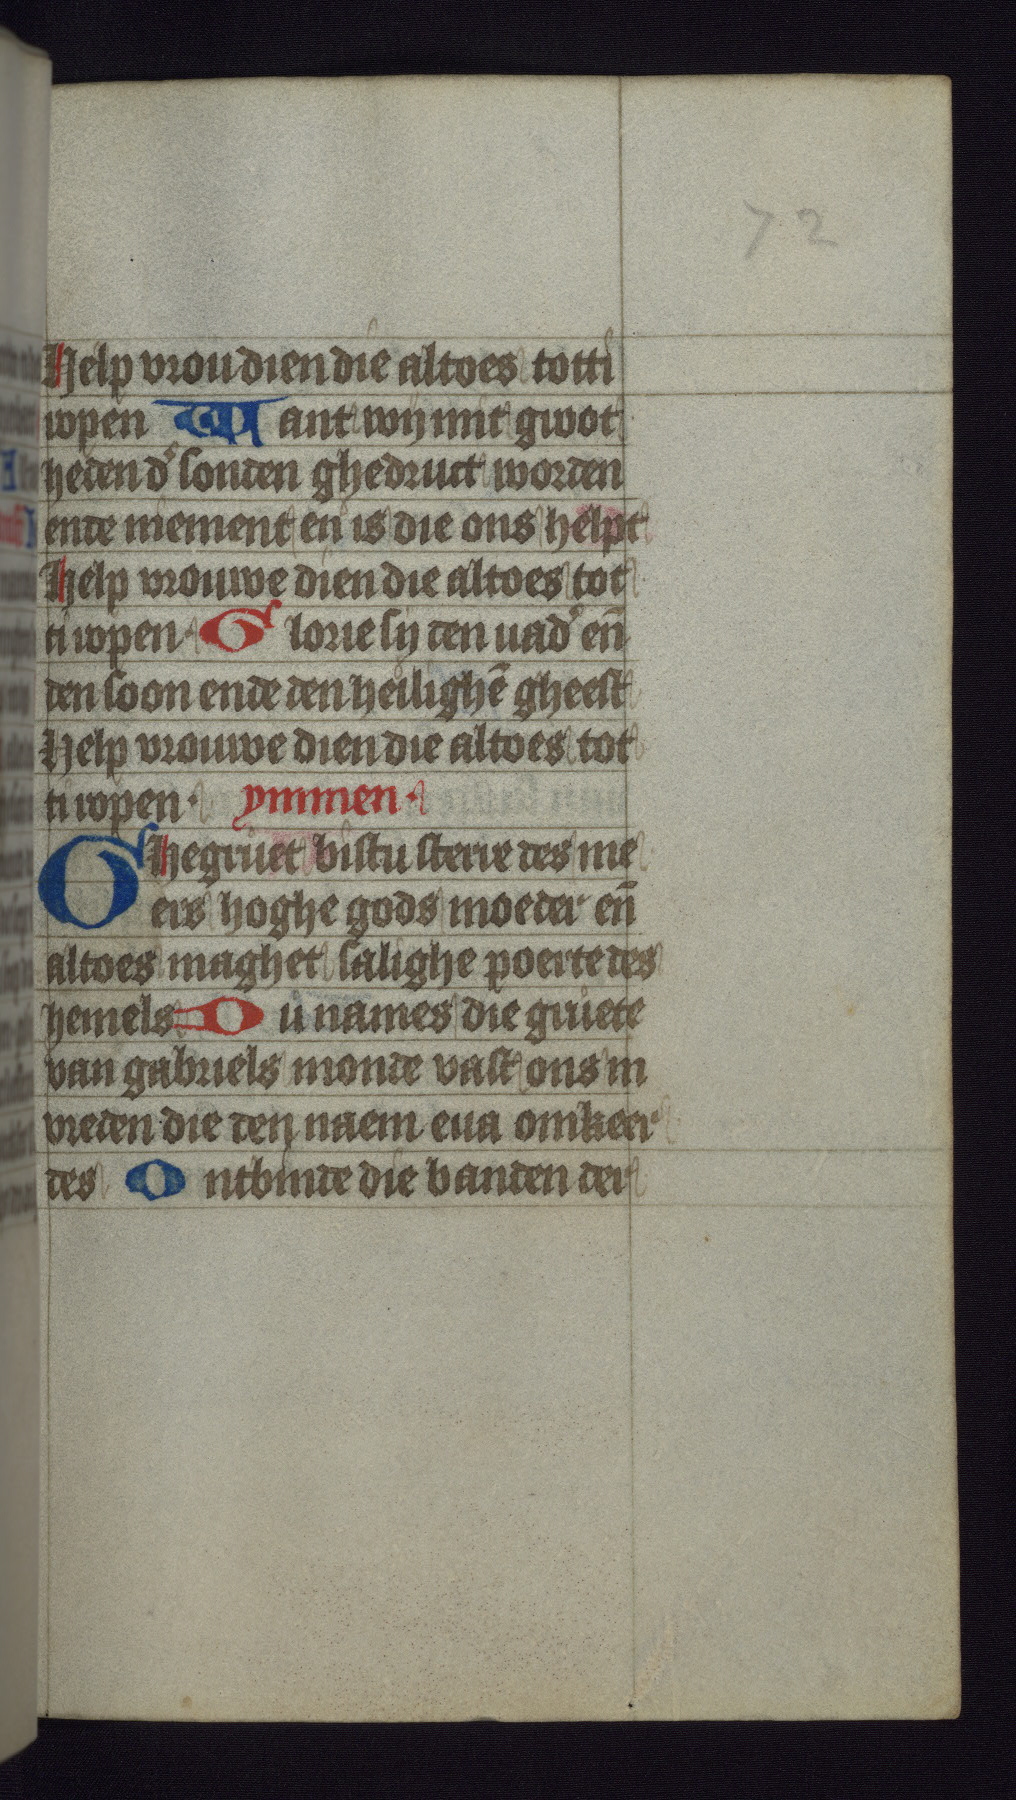 72
Help vrou dien die altoes totti
ropen Want wy mit groot
heden d' sonden ghedruct worden
ende niement en is die ons helpt
Help vrouwe dien die altoes tot
ti ropen· Glorie sy den uad' en̄
den soon ende den heilighē gheest
Help vrouwe dien die altoes tot
ti ropen· ymmen·
Ghegruet bistu sterre des me
ers hoghe gods moeder en̄
altoes maghet salighe poerte des
hemels Du names die gruete
van gabriels monde vast ons in
vreden die den naem eua omkeer
des Ontbinde die banden der